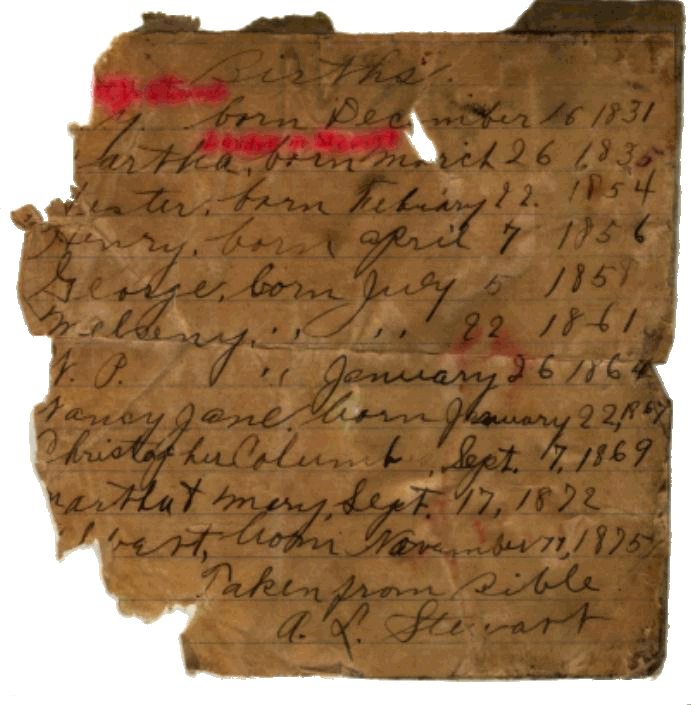 Births.
y. born December 16 1831
artha, born march 26 183
ester, born Febuary 22. 1854
Henry, born april 7 1856
George, born July 5 1858
Melseny, " " 22 1861
W. P. " January 26 1864
Nancy Jane born January 22, 1867
Christopher Columb , Sept. 7, 1869
martha & mary, Sept. 17, 1872
born November 1875
Taken from Bible
A. L. Stewart